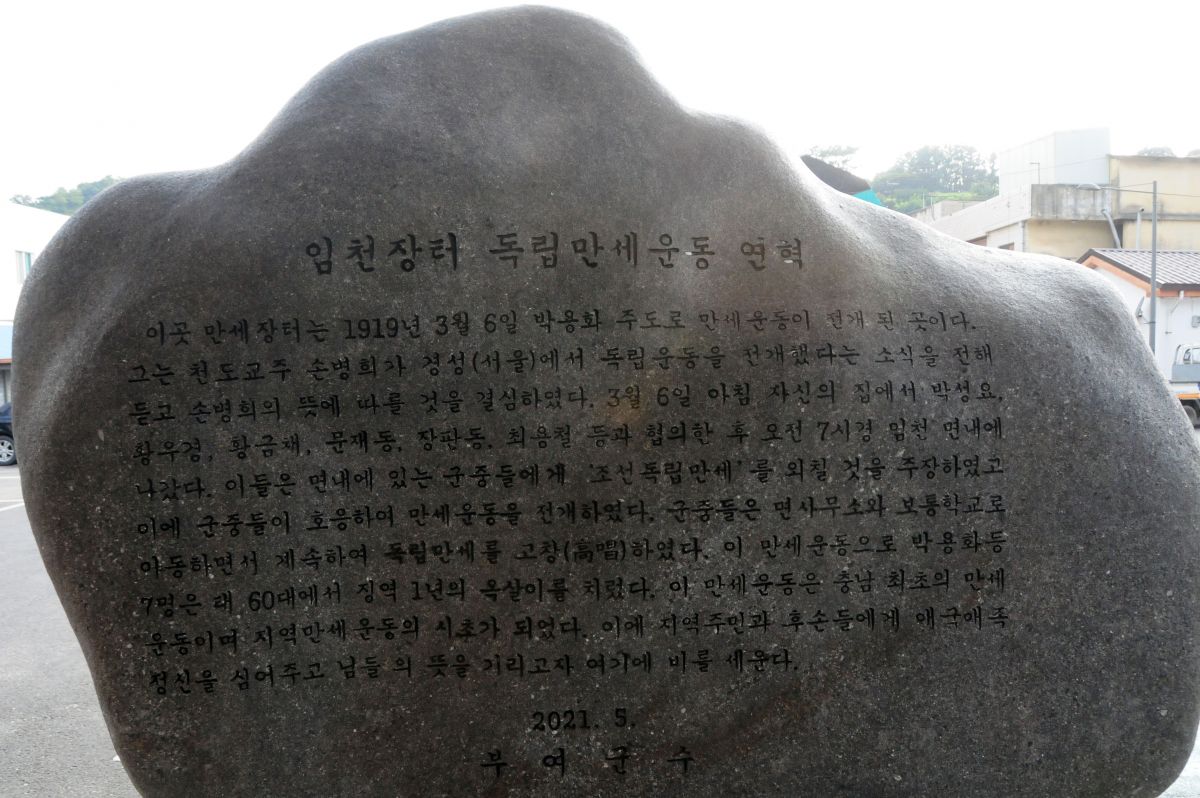 임천장터 독립만세운동 연혁
이곳 만세장터는 1919년 3월 6일 박용화 주도로 만세운동이 전개 된 곳이다.
그는 천도교주 손병희가 경성(서울)에서 독립운동을 전개했다는 소식을 전해
듣고 손병희의 뜻에 따를 것을 결심하였다. 3월 6일 아침 자신의 집에서 박성요,
황우경, 황금채, 문재동, 장판동, 최용철 등과 협의한 후 오전 7시경 임천 면내에
나갔다. 이들은 면내에 있는 군중들에게 '조선독립만세'를 외칠 것을 주장하였고
이에 군중들이 호응하여 만세운동을 전개하였다. 군중들은 면사무소와 보통학교로
이동하면서 계속하여 독립만세를 고창(高唱)하였다. 이 만세운동으로 박용화등
7명은 태 60대에서 징역 1년의 옥살이를 치렀다. 이 만세운동은 충남 최초의 만세
운동이며 지역만세운동의 시초가 되었다. 이에 지역주민과 후손들에게 애국애족
정신을 심어주고 님들 의 뜻을 기리고자 여기에 비를 세운다.
2021. 5.
부 여 군 수